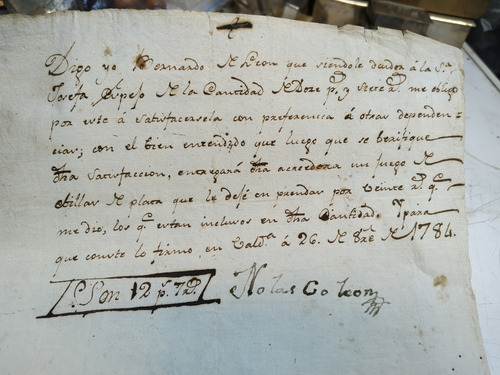 Digo yo Bernardo de Leon que siendole deudor á la Sa.
Josefa de la Cantidad de Doze ps. y siete rs. me obligo
por este á satisfacersela con preferencia á otras dependen-
cias; con el bien entendido que luego que se berifique
dha satisfaccion, entregará dha acrehedora un juego de
evillas de plata que le dejé en prendas por veinte rs. y
medio, los qe. estan inclusos en dha Cantidad. Y para
que conste lo firmo, en á 26. de de 1784.
Son 12 ps. 7 rs.
Nolasco Leon